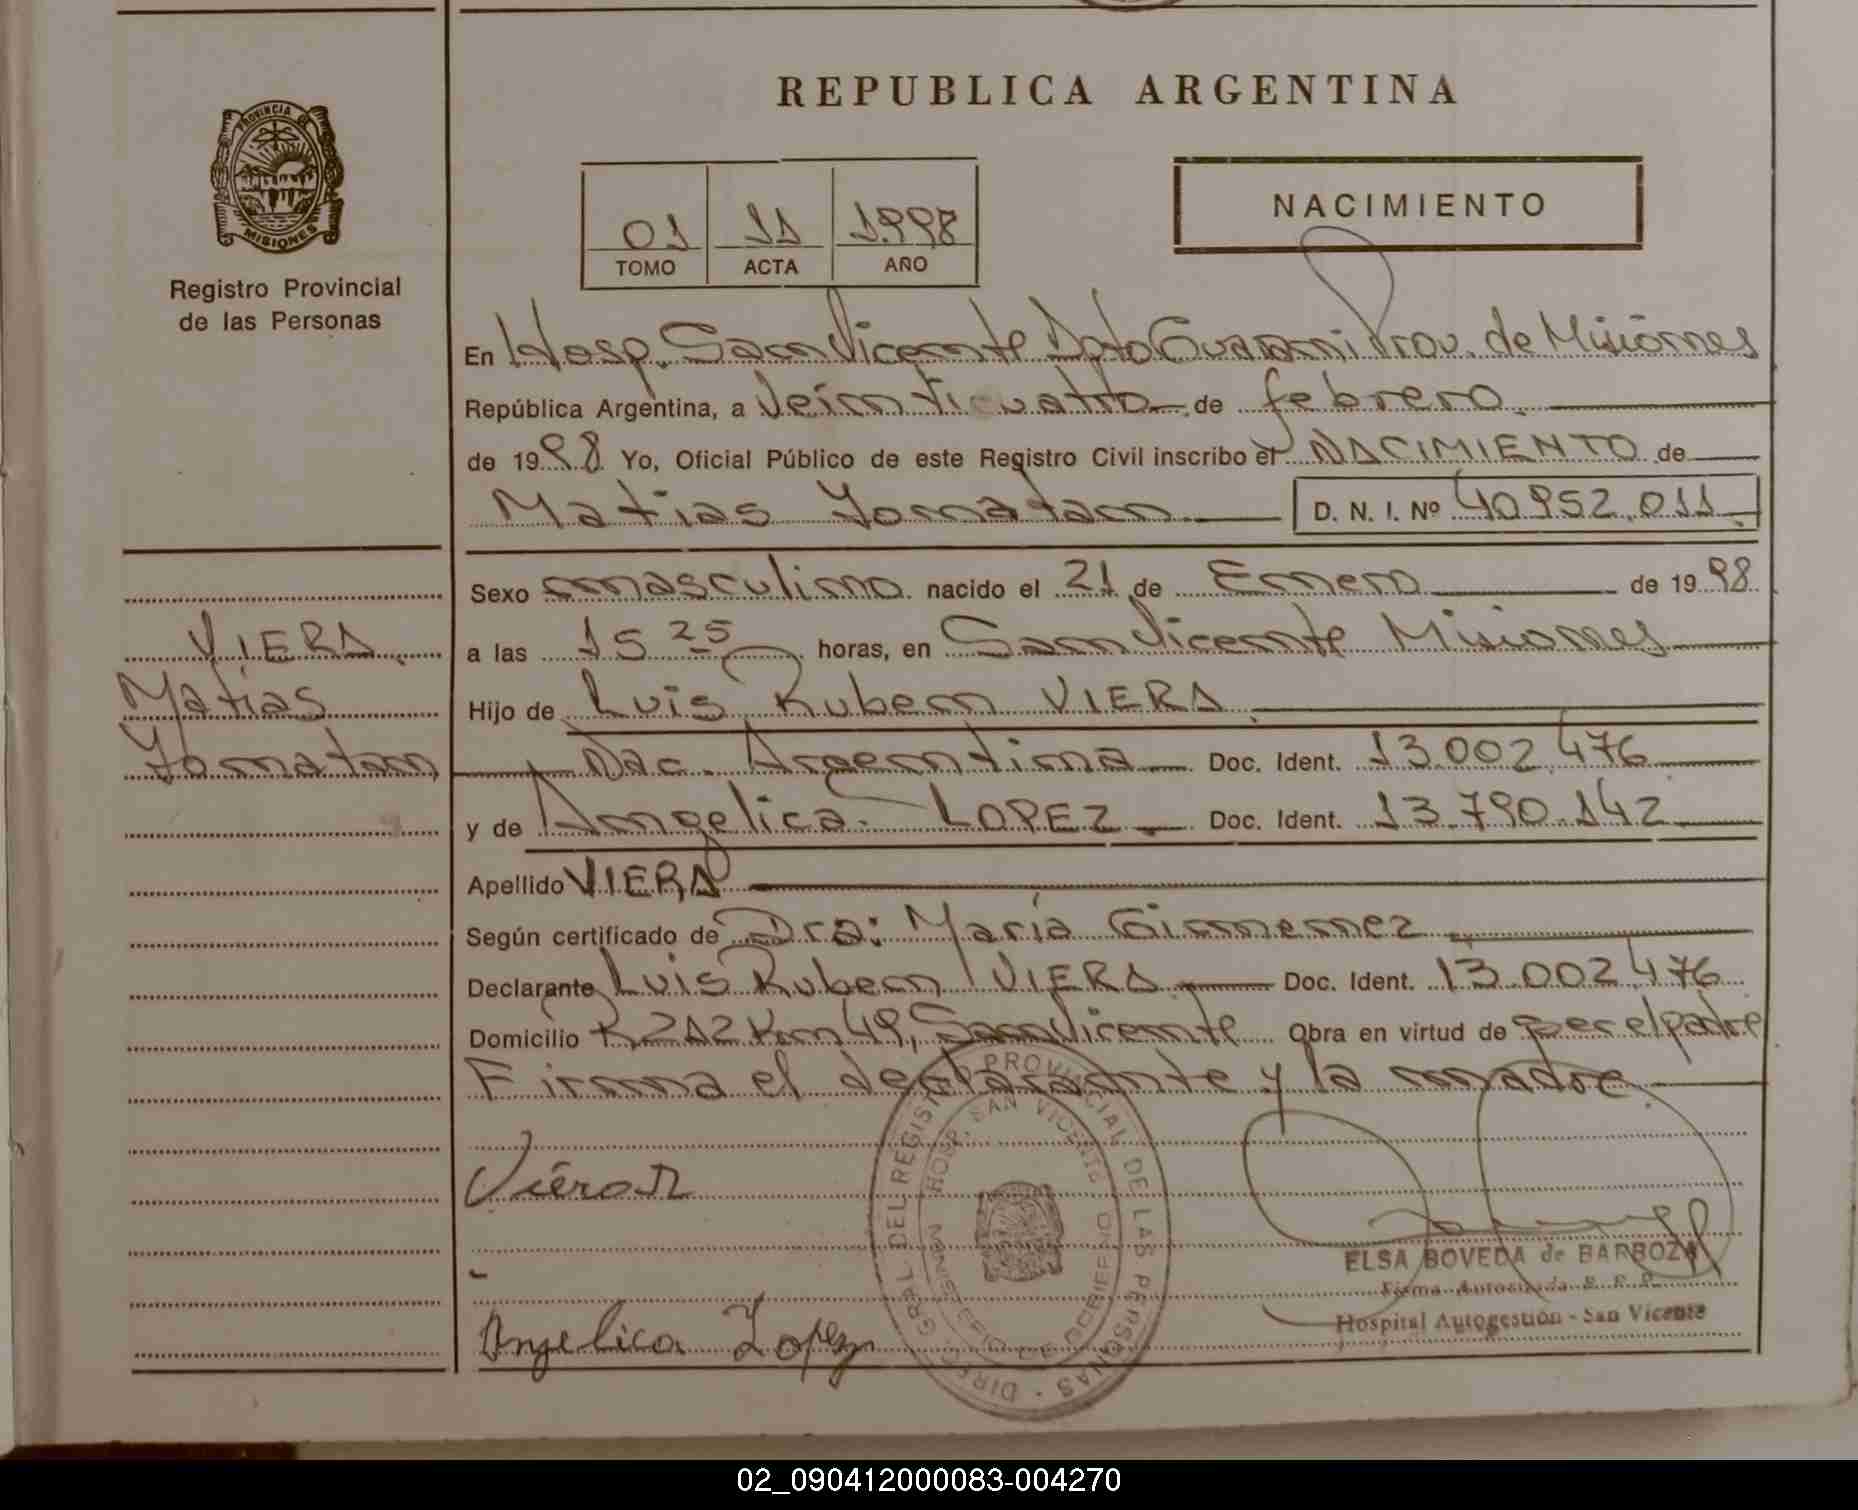 REPUBLICA ARGENTINA
PROVINCIA DE
MISIONES
Registro Provincial
de las Personas
01 11 1.998
TOMO ACTA AÑO
NACIMIENTO
En Hosp. San Vicente Dpto Guarani Prov. de Misiones
República Argentina, a Veinticuatro de febrero.
de 1998 Yo, Oficial Público de este Registro Civil inscribo el NACIMIENTO de
Matias Yonatan D. N. I. Nº 40952.011
Sexo masculino nacido el 21 de Enero de 1998
a las 15 25 horas, en San Vicente Misiones
Hijo de Luis Ruben VIERA
Nac. Argentina Doc. Ident. 13.002.476
y de Angelica LOPEZ Doc. Ident. 13.790.142
Apellido VIERA
Según certificado de Dra: María Gimenez
Declarante Luis Ruben VIERA Doc. Ident. 13.002.476
Domicilio R 2 A2 Km 49, San Vicente Obra en virtud de ser el padre
Firma el declarante y la madre
VIERA.
Matías
Yonatan
Angelica Lopez
DIREC. GRAL. DEL REGISTRO PROVINCIAL DE LAS PERSONAS
HOSP. SAN VICENTE
MINISTERIO DE GOBIERNO
ELSA BOVEDA de BARBOZA
Firma Autorizada R. P. P.
Hospital Autogestión - San Vicente
02_090412000083-004270